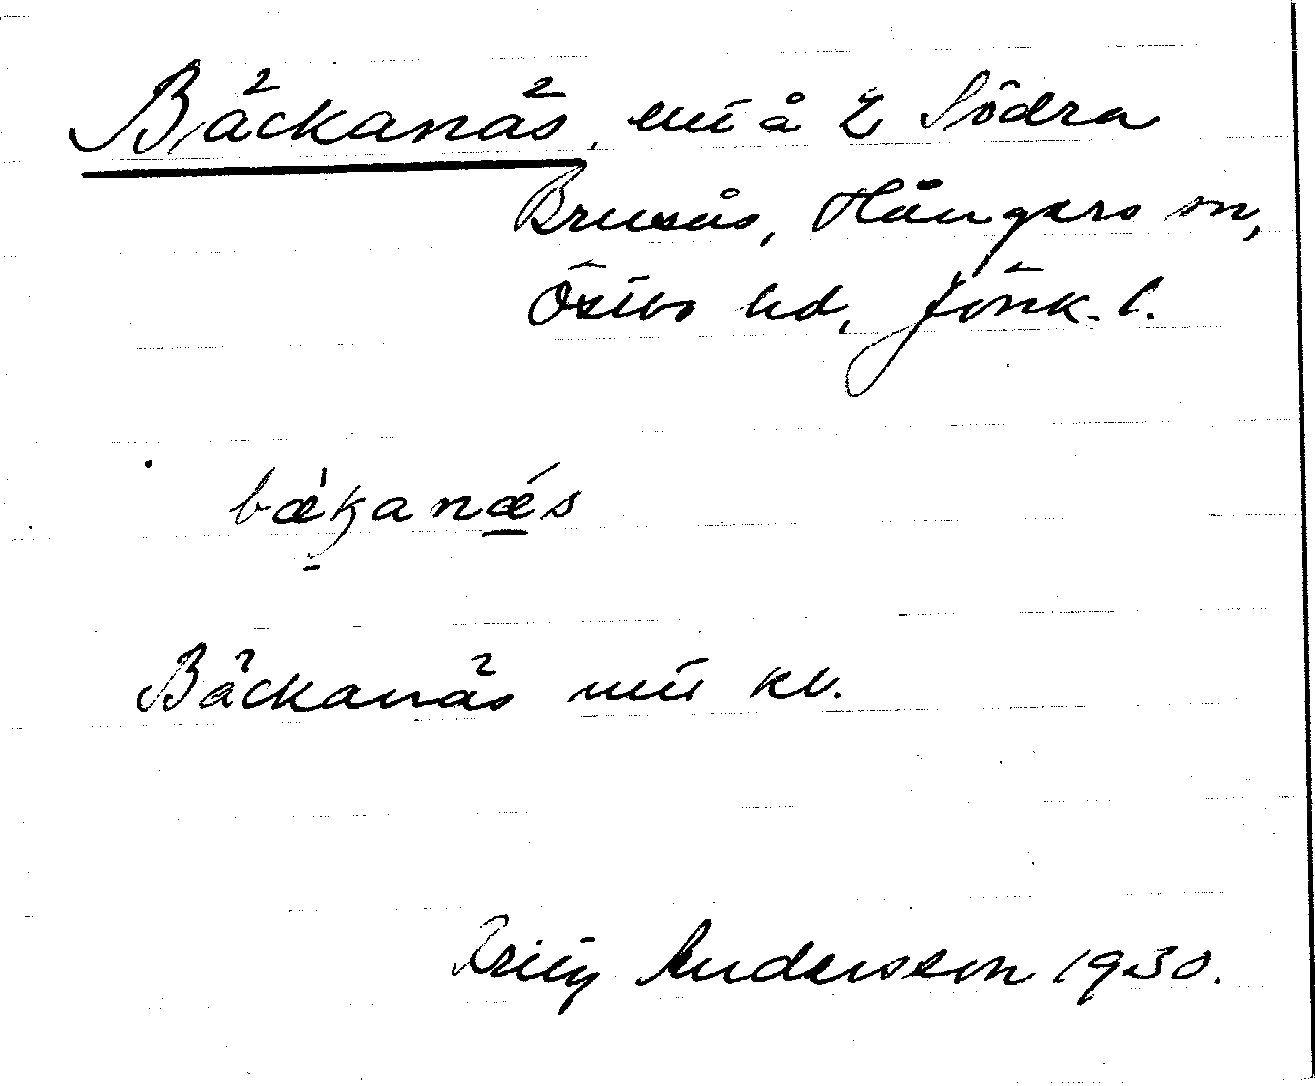 Bäckanäs, utj å 2 Södra
Brusås, Hångers sn,
Östbo hd, Jönk. l.
bæ̀kanǽs
Bäckanäs utj kb.
Fritz Andersson 1930.